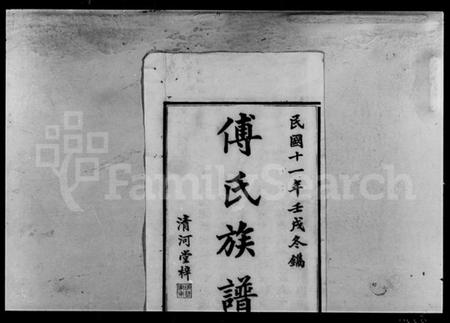 民國十一年壬戌冬鐫
傅氏族譜
清河堂梓
FamilySearch